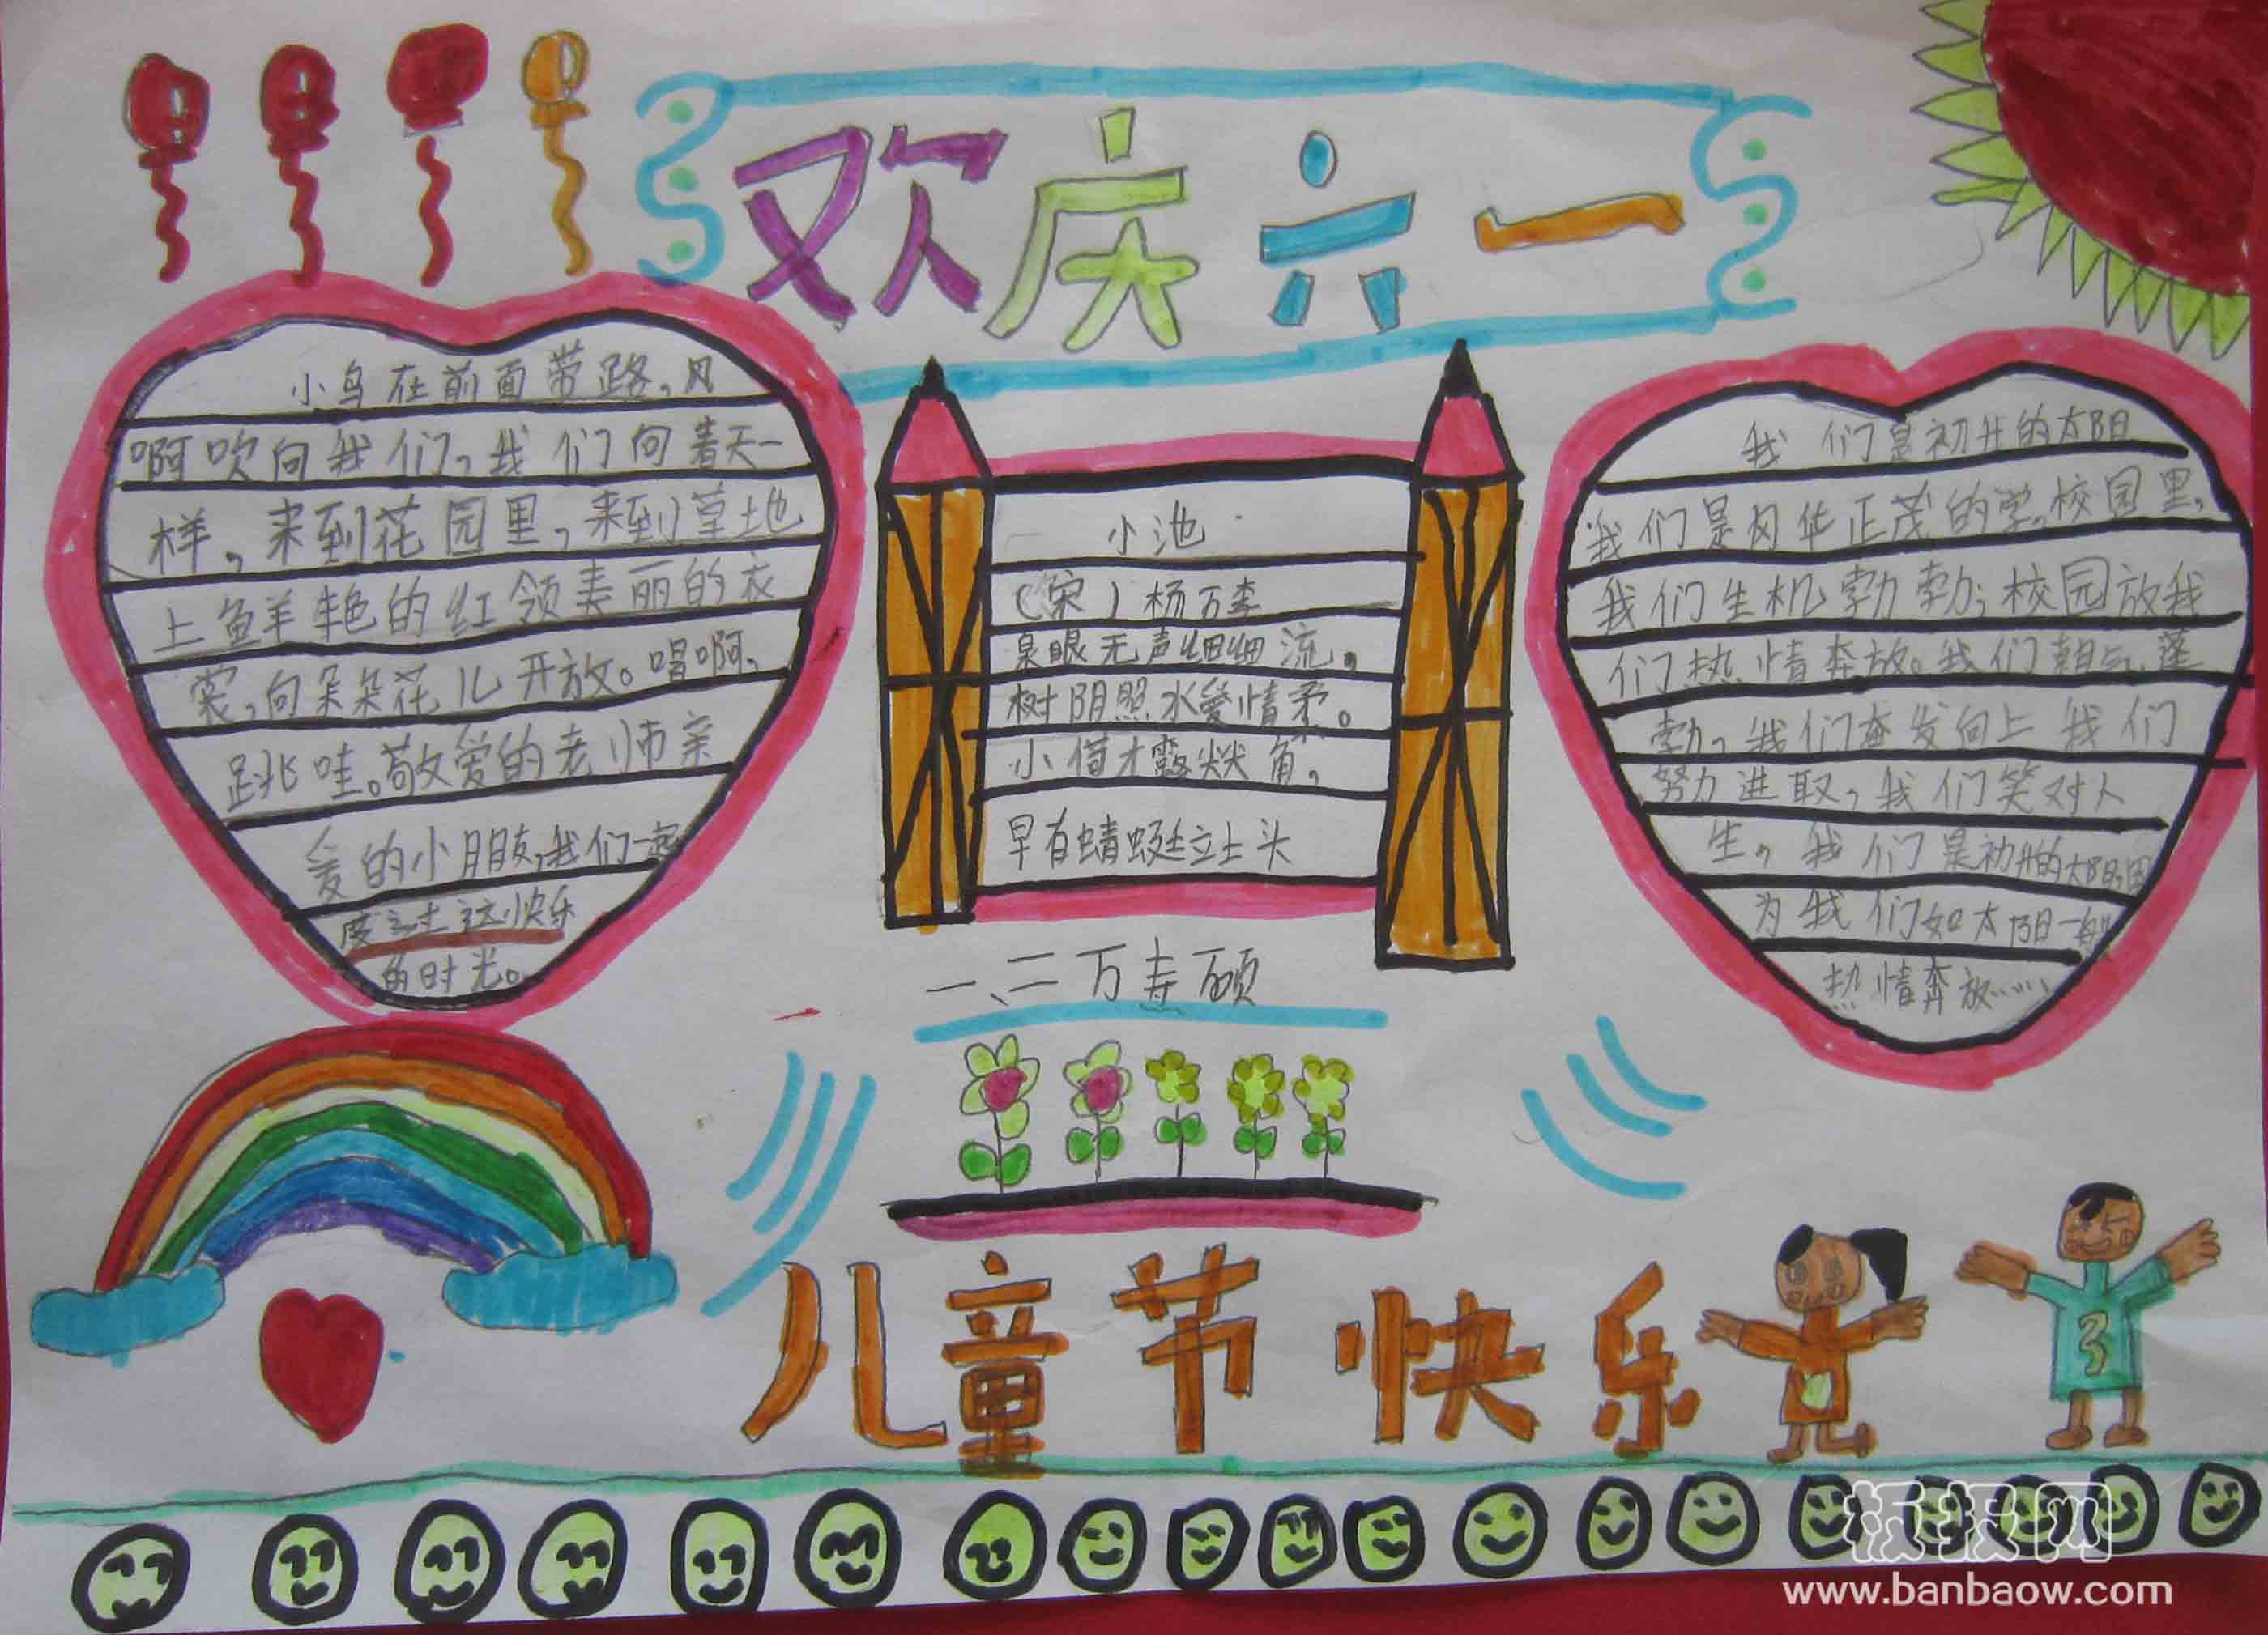 欢庆六一
小鸟在前面带路,风
啊吹向我们,我们向着天一
样,来到花园里,来到草地
上鲜艳的红领美丽的衣
裳,向朵朵花儿开放。唱啊,
跳哇。敬爱的老师亲
爱的小朋友,我们一起
度过这快乐
的时光。
小池
(宋)杨万李
泉眼无声细细流,
树阴照水爱情柔。
小借才露尖角,
早有蜻蜓立上头
一、二万寿颐
我们是初升的太阳
我们是风华正茂的学,校园里,
我们生机勃勃;校园放我
们热情奔放。我们朝气蓬
勃,我们奋发向上我们
努力进取,我们笑对人
生,我们是初升的太阳,因
为我们如太阳一般
热情奔放……
儿童节快乐
3
板报网
www.banbaow.com